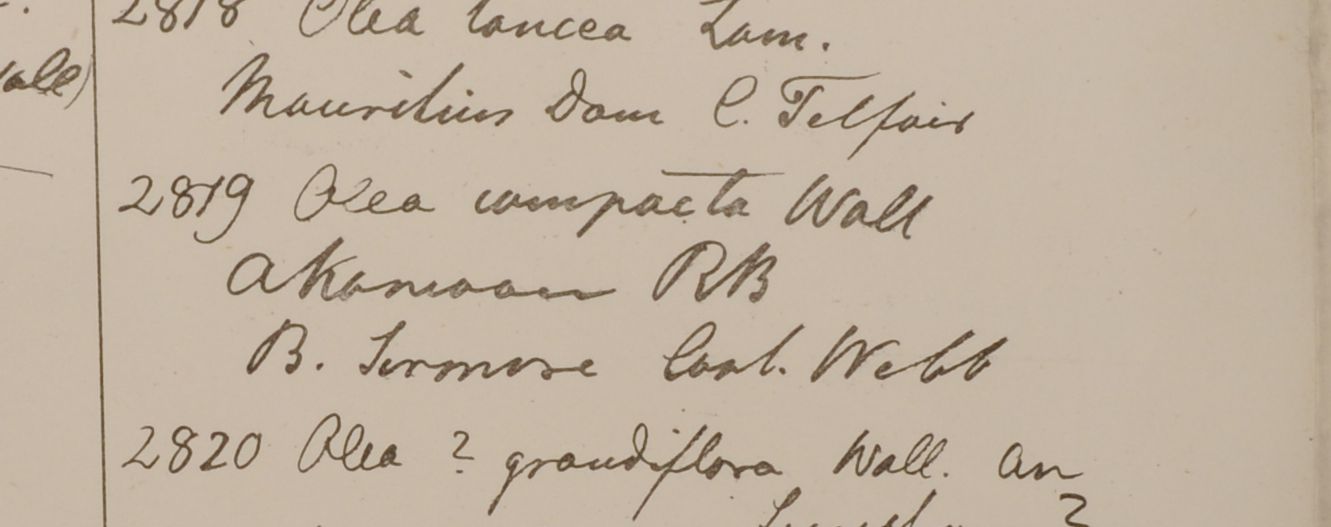 2818 Olea lancea Lam.
Mauritius Dom C. Telfair
2819 Olea compacta Wall
A Kamaoon RB
B. Sirmore Capt. Webb
2820 Olea ? grandiflora Wall. an
?